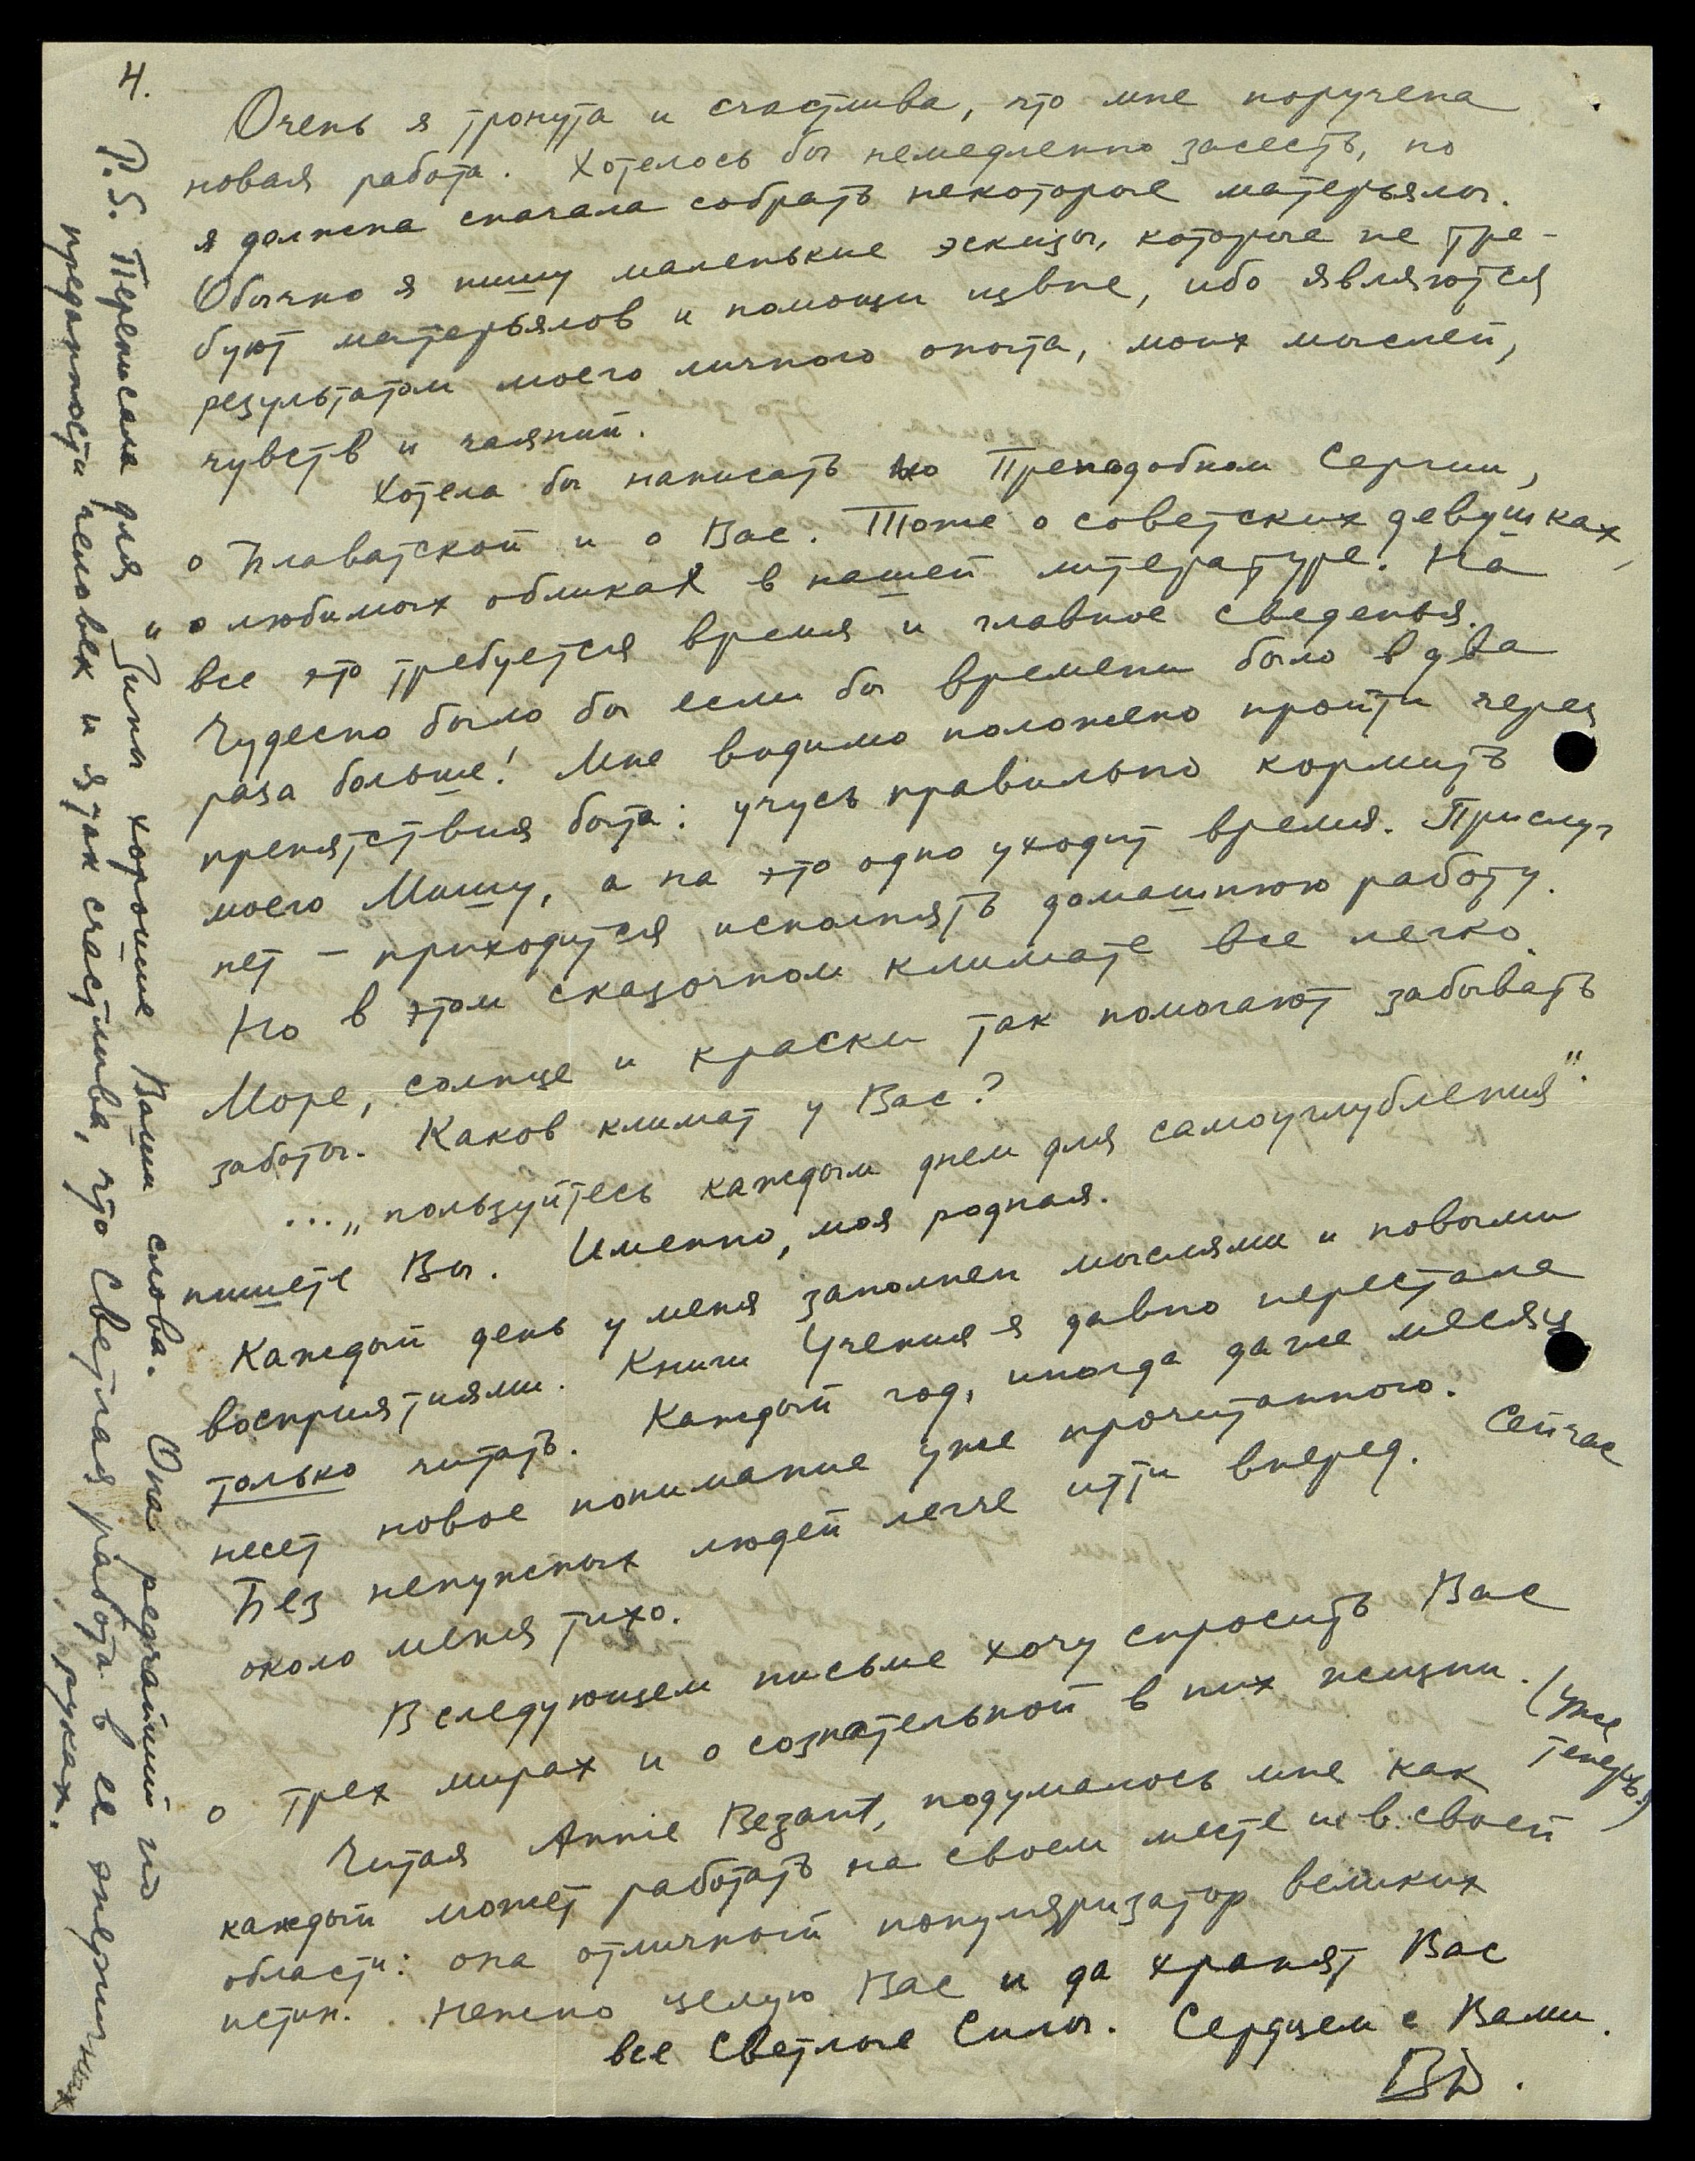 4.
Очень я тронута и счастлива, что мне поручена
новая работа. Хотелось бы немедленно засесть, но
я должна сначала собрать некоторые матерьялы.
Обычно я пишу маленькие эскизы, которые не тре-
буют матерьялов и помощи извне, ибо являются
результатом моего личного опыта, моих мыслей,
чувств и чаяний.
Хотела бы написать о Преподобном Сергии,
о Блаватской и о Вас. Тоже о советских девушках,
о любимых обликах в нашей литературе. На
все это требуется время и главное сведенья.
Чудесно было бы если бы времени было в два
раза больше! Мне видимо положено пройти через
препятствия быта: учусь правильно кормить
моего Мишу, а на это одно уходит время. Прислуг
нет – приходится исполнять домашнюю работу.
Но в этом сказочном климате все легко.
Море, солнце и краски так помогают забывать
заботы. Каков климат у Вас?
... „пользуйтесь каждым днем для самоуглубления".
пишете Вы. Именно, моя родная.
Каждый день у меня заполнен мыслями и новыми
восприятиями. Книги Учения я давно перестала
только читать. Каждый год, иногда даже месяц
несет новое понимание уже прочитанного.
Без ненужных людей легче итти вперед. Сейчас
около меня тихо.
В следующем письме хочу спросить Вас
о трех мирах и о сознательной в них жизни. (уже
теперь.)
Читая Annie Besant, подумалось мне как
каждый может работать на своем месте и в своей
области: она отличный популяризатор великих
истин. Нежно целую Вас и да хранят Вас
все Светлые Силы. Сердцем с Вами.
ВД.
P.S. Переписала для Зины хорошие Ваши слова. Она редчайший по
преданности человек и я так счастлива, что Светлая работа в ее энергичных
руках.